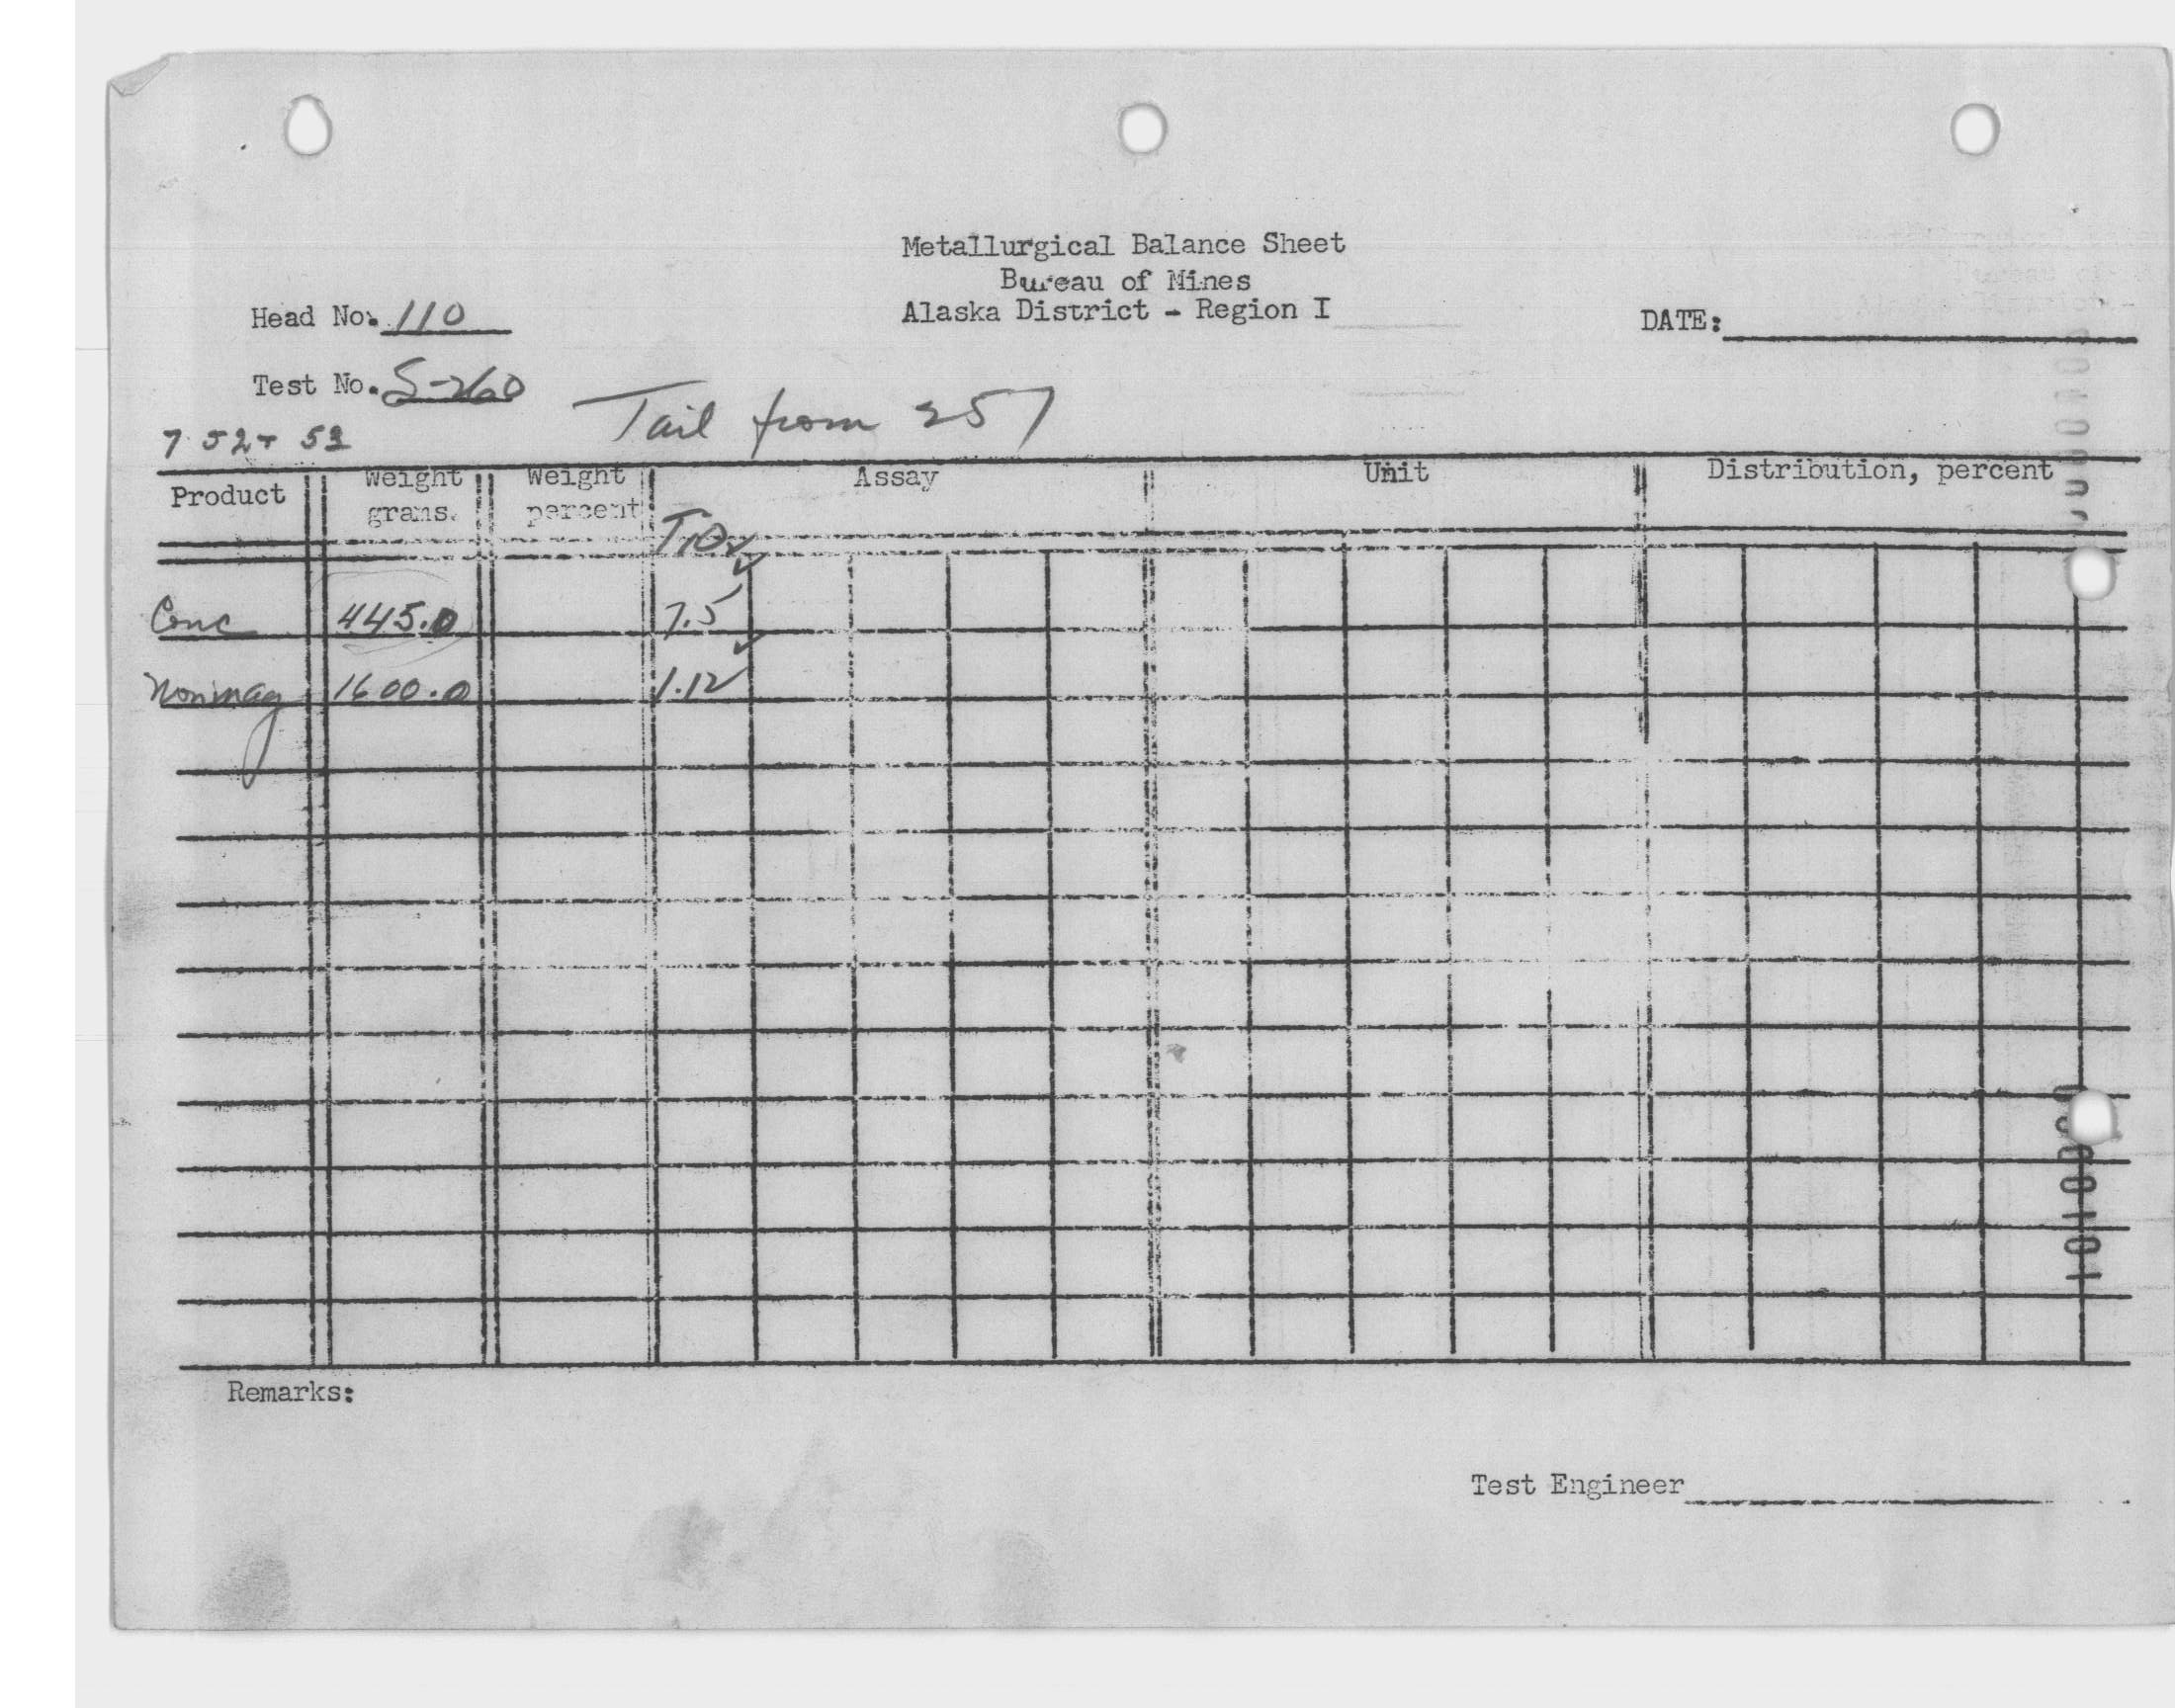 Metallurgical Balance Sheet
Bureau of Mines
Alaska District - Region I
Head No. 110
DATE:
Test No. S-260
Tail from 257
7 52+ 53
Product Weight grams. Weight percent Assay Unit Distribution, percent
TiO2
Conc 445.0 7.5
Nonmag 1600.0 1.12
Remarks:
Test Engineer